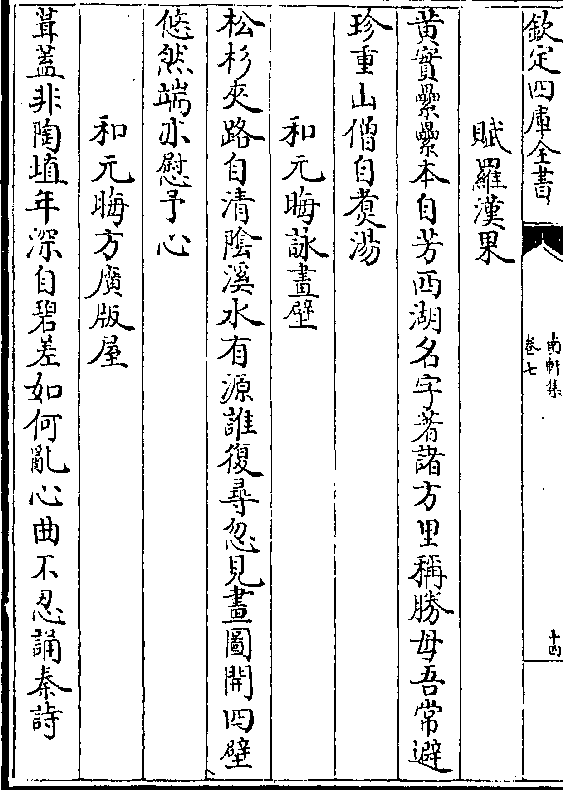 欽定四庫全書
南軒集
卷七
十四
賦羅漢果
黄實纍纍本自芳西湖名字著諸方里稱勝母吾常避
珍重山僧自煑湯
和元晦詠畫壁
松杉夾路自清隂溪水有源誰復尋忽見畫圖開四壁
悠然端亦慰予心
和元晦方廣版屋
葺蓋非陶埴年深自碧差如何亂心曲不忍誦秦詩